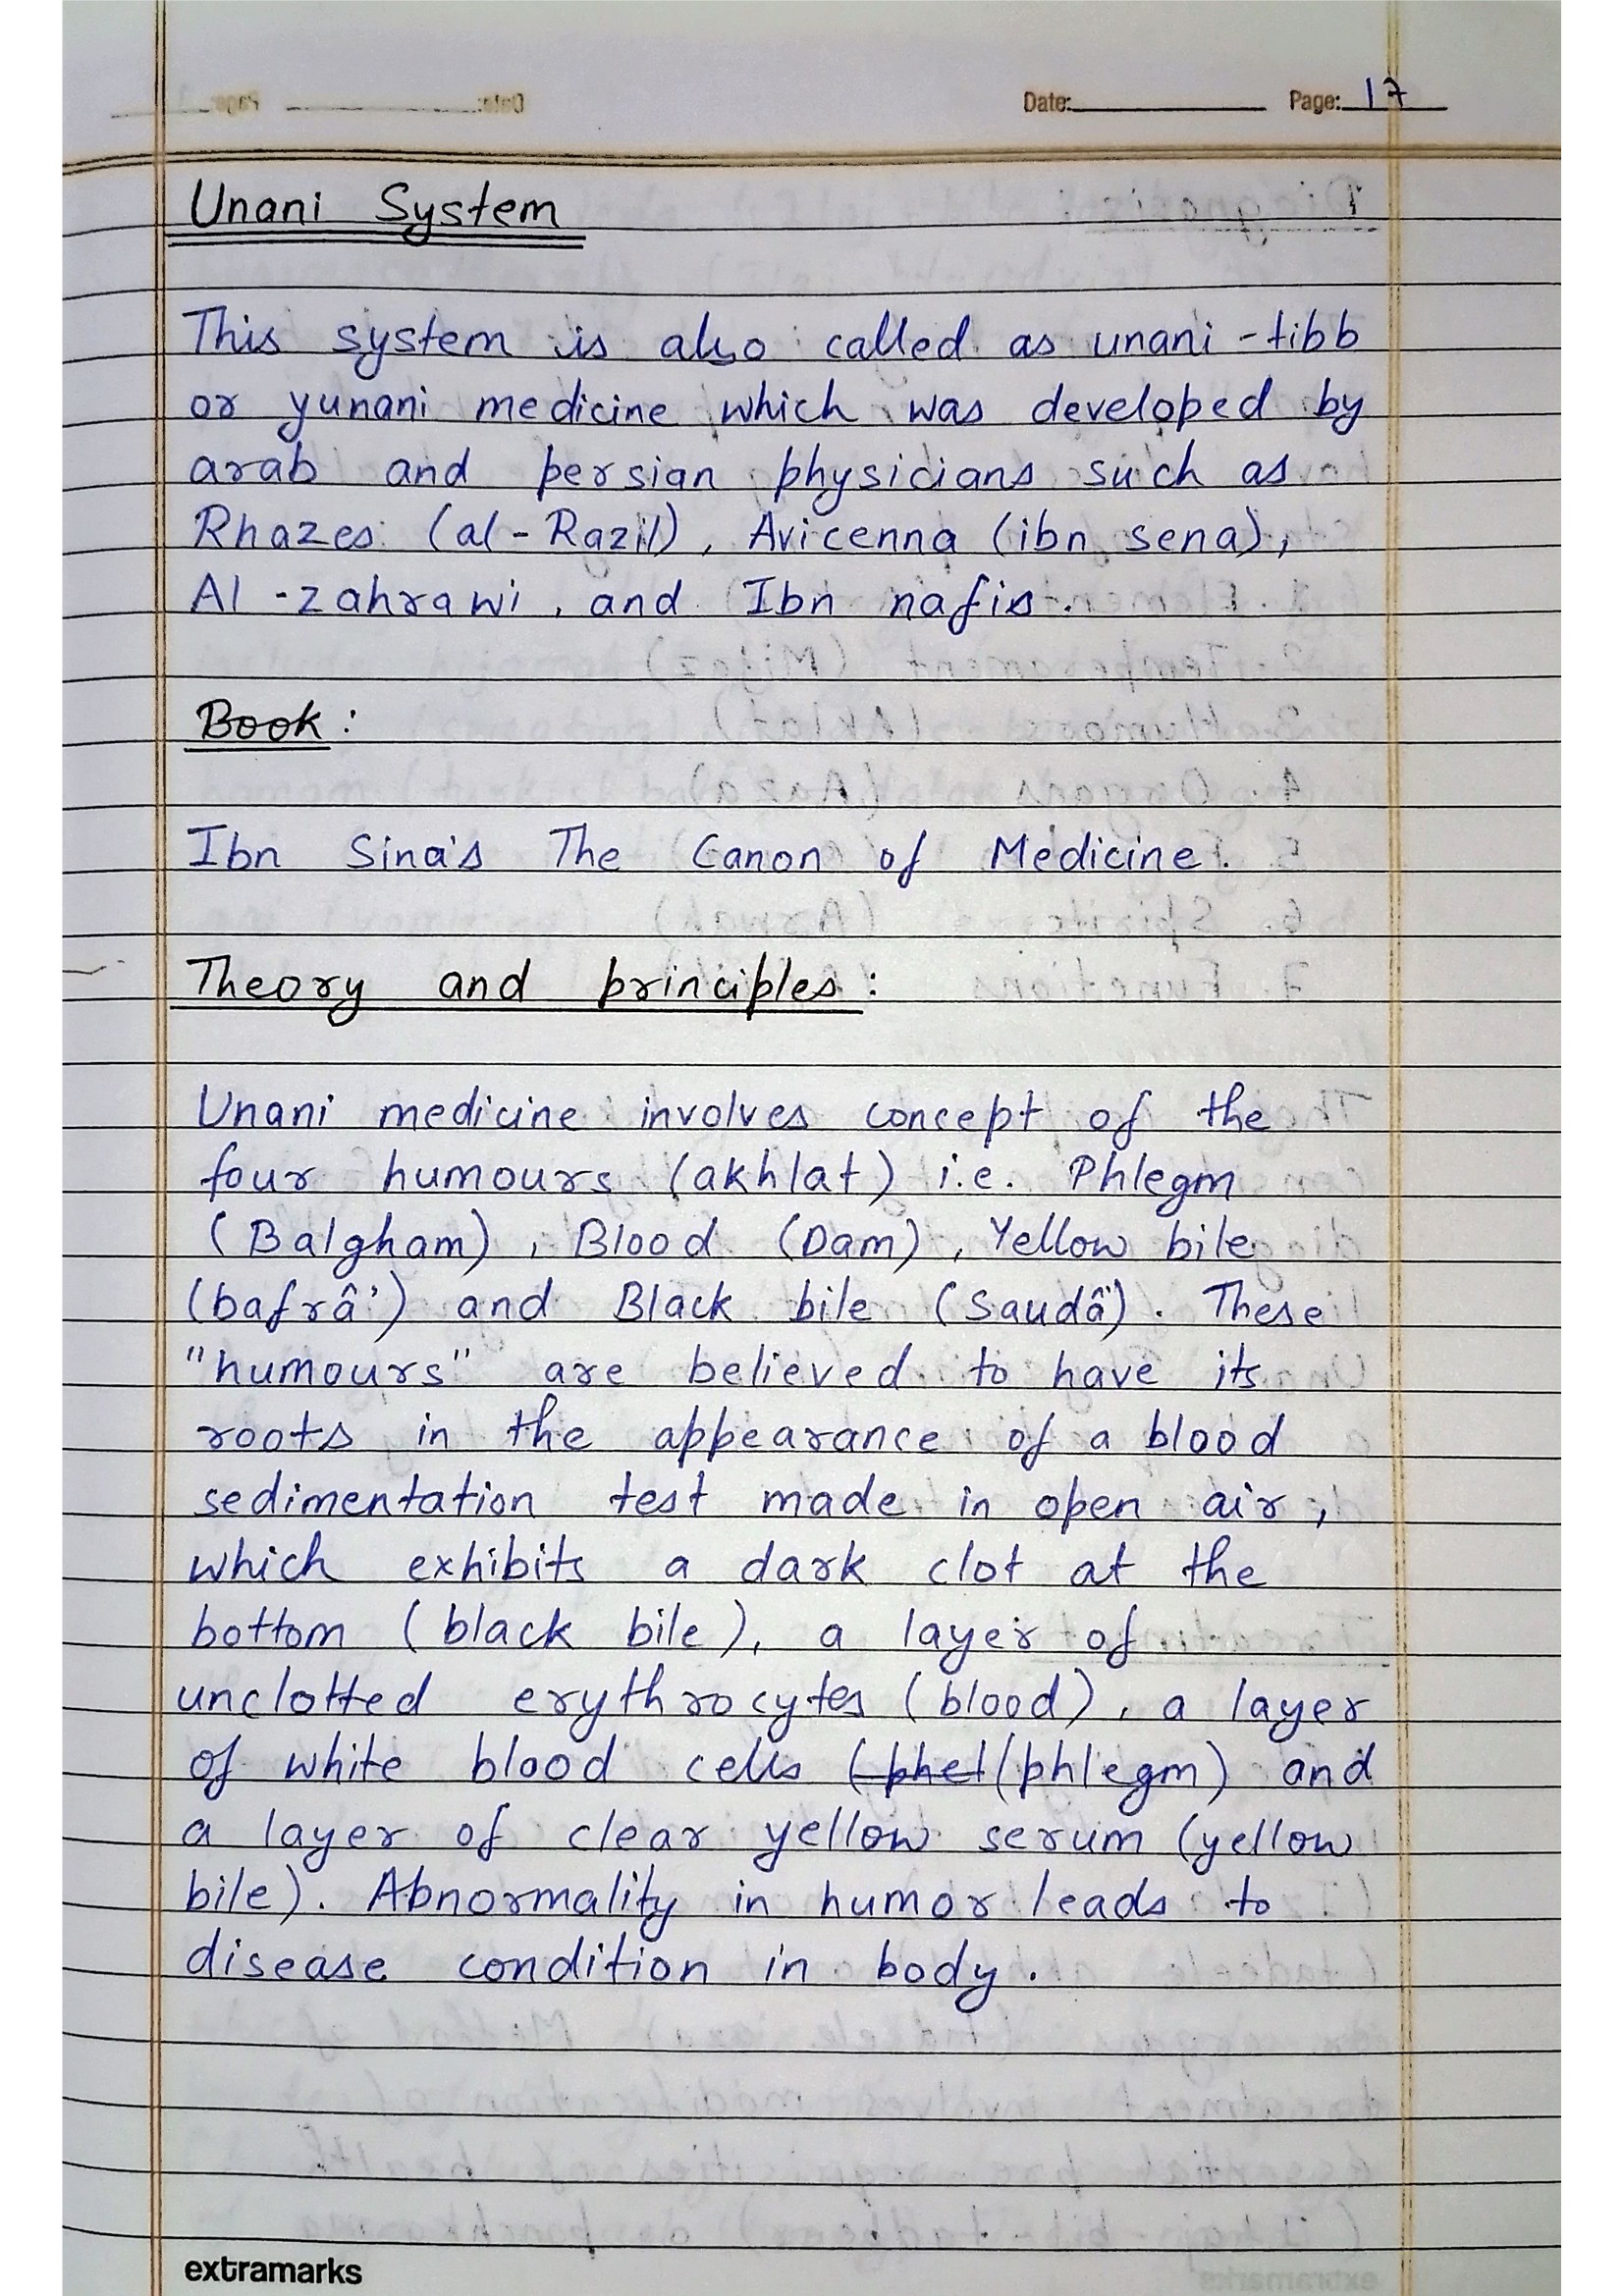 Date: Page: 17
Unani System
This system is also called as unani-tibb
or yunani medicine which was developed by
arab and persian physicians such as
Rhazes (al-Razil), Avicenna (ibn sena),
Al-zahrawi, and Ibn nafis.
Book:
Ibn Sina's The Canon of Medicine.
Theory and principles:
Unani medicine involves concept of the
four humours (akhlat) i.e. Phlegm
(Balgham), Blood (Dam), Yellow bile
(bafrâ') and Black bile (Saudâ'). These
"humours" are believed to have its
roots in the appearance of a blood
sedimentation test made in open air,
which exhibits a dark clot at the
bottom (black bile), a layer of
unclotted erythrocytes (blood), a layer
of white blood cells (phel (phlegm) and
a layer of clear yellow serum (yellow
bile). Abnormality in humor leads to
disease condition in body.
extramarks